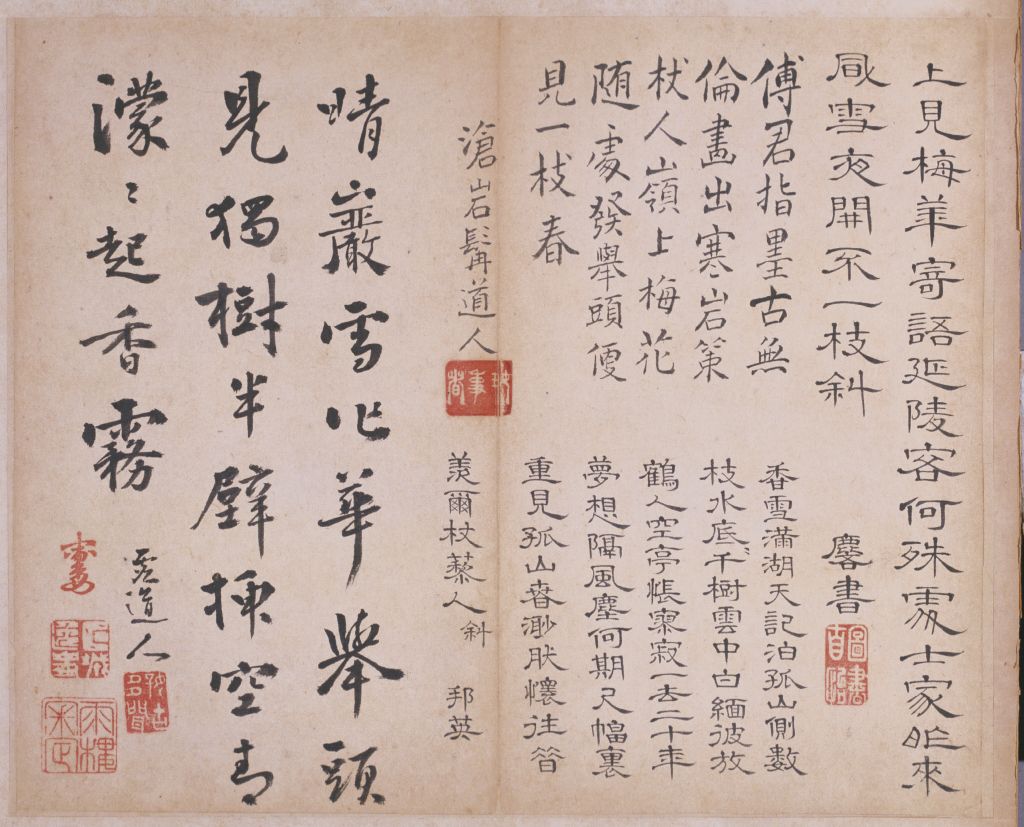 上見梅華寄語延陵客何殊處士家昨來
風雪夜開不一枝斜
麐書
傅君指墨古無
倫畫出寒岩策
杖人山嶺上梅花
随〻處發舉頭便
見一枝春
滄岩髯道人
香雪滿湖天記泊孤山側數
枝水底千樹雲中白緬彼放
鶴人空亭悵寥寂一去二十年
夢想隔風塵何期尺幅裏
重見孤山春渺朕懷往昔
羨爾杖藜人斜
邦英
晴巖雪作華舉頭
見獨樹半壁插空青
濛〻起香霧
道人